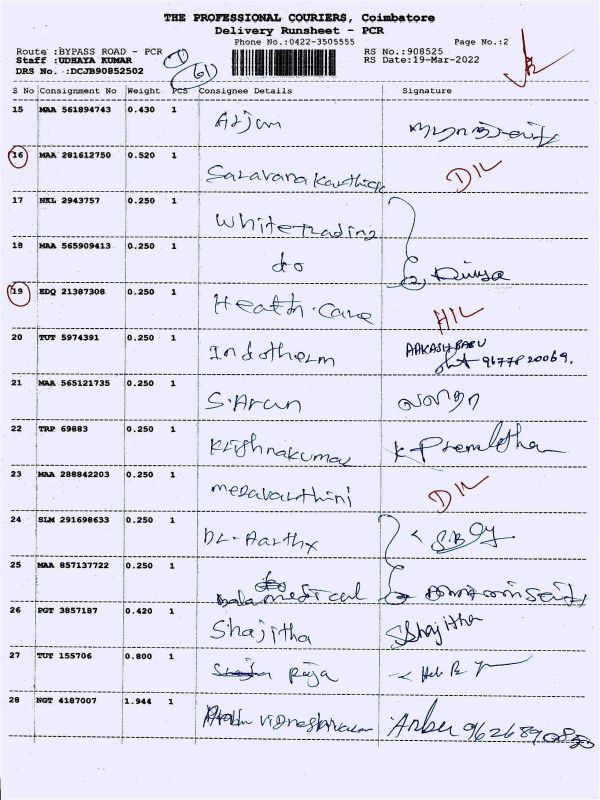 THE PROFESSIONAL COURIERS, Coimbatore
Delivery Runsheet - PCR
Phone No.:0422-3505555 Page No.:2
Route :BYPASS ROAD - PCR RS No.:908525
Staff :UDHAYA KUMAR RS Date:19-Mar-2022
DRS No. :DCJB90852502
S No Consignment No Weight PCS Consignee Details Signature
15 MAA 561894743 0.430 1 Arjun
16 MAA 281612750 0.520 1 Saravana Karthick DIL
17 NKL 2943757 0.250 1 White trading
18 MAA 565909413 0.250 1 do Divya
19 EDQ 21387308 0.250 1 Health Care HIL
20 TUT 5974391 0.250 1 Indotherm AAKASH BABU
21 MAA 565121735 0.250 1 S.Arun
22 TRP 69883 0.250 1 Krishnakumar K Premletha
23 MAA 288842203 0.250 1 DIL
24 SLM 291698633 0.250 1 Dr. Aarthy
25 MAA 857137722 0.250 1 medical
26 PGT 3857187 0.420 1 Shajitha Shajitha
27 TUT 155706 0.800 1 Raja
28 NGT 4187007 1.944 1